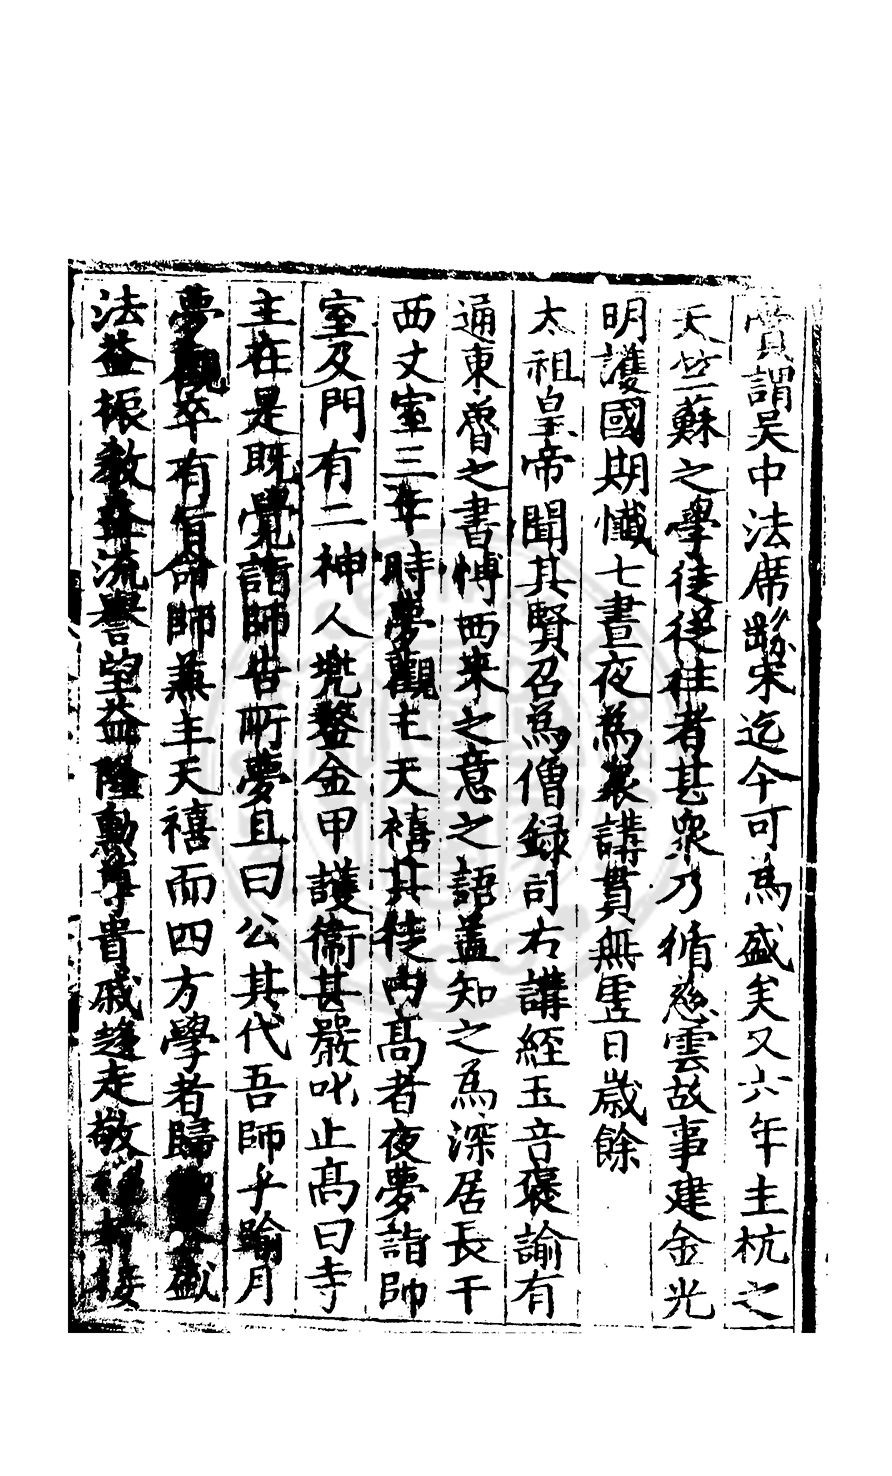 賞謂吳中法席繇宋迄今可為盛矣又六年主杭之
天竺蘇之學徒從往者甚衆乃循慈雲故事建金光
明護國期懺七晝夜為衆講貫無虛日歲餘
太祖皇帝聞其賢召為僧録司右講經玉音褒諭有
通東魯之書博西来之意之語盖知之為深居長干
西丈室三年時夢觀主天禧其徒内髙者夜夢詣師
室及門有二神人兠鍪金甲護衛甚嚴叱止髙曰寺
主在是既覺詣師告所夢且曰公其代吾師乎踰月
夢觀卒有旨命師兼主天禧而四方學者歸益盛
法益振教益流譽望益隆勳尊貴戚趍走敬接